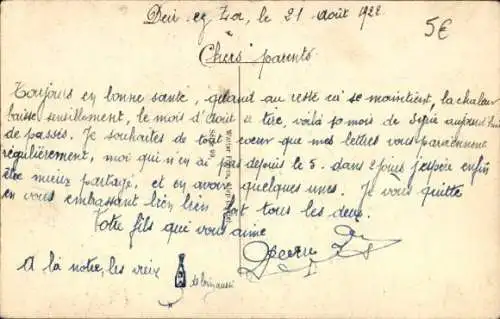 Deir-ez-Zor, le 21 Août 1922
5€
Chers parents
Toujours en bonne santé, quand au reste ça se maintient, la chaleur
baisse sensiblement, le mois d'août a tiré, voilà 10 mois de Syrie aujourd'hui
de passés. Je souhaites de tout cœur que mes lettres vous parviennent
régulièrement, moi qui n'en ai pas depuis le 5. dans 2 jours j'espère enfin
être mieux partagé, et en avoir quelques unes. Je vous quitte
en vous embrassant bien bien fort tous les deux.
Votre fils qui vous aime
A la notre, les vieux